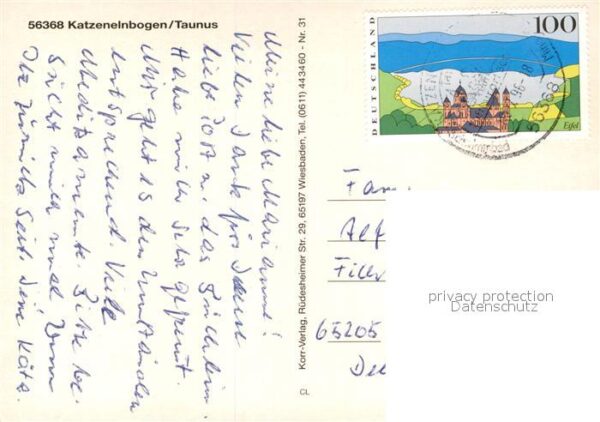 56368 Katzenelnbogen/Taunus
Meine liebe Marianne!
Vielen Dank für Deine
liebe Post u. das Büchlein.
Habe mich sehr gefreut.
Mir geht es den Umständen
entsprechend. Viele
Medikamente. Bitte be-
sucht mich mal wenn
Ihr Zeit seid. Deine Käthe.
Korr-Verlag, Rüdesheimer Str. 29, 65197 Wiesbaden, Tel. (0611) 443460 - Nr. 31
CL
DEUTSCHLAND
100
Eifel
56368
Fam.
Alf
Fill
65205
privacy protection
Datenschutz